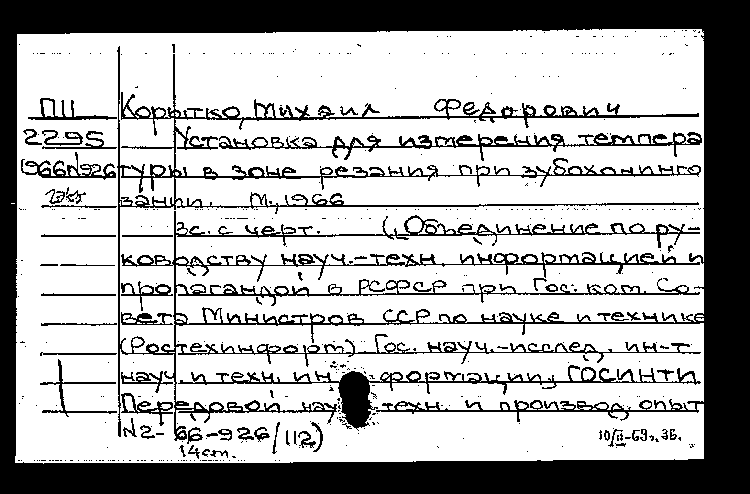 ПII Корытко, Михаил Федорович
2295 Установка для измерения темпера
1966 N926 туры в зоне резания при зубохонинго
вании. М., 1966
3с. с черт. („Объединение по ру-
ководству науч.-техн. информацией и
пропагандой в РСФСР при Гос. ком. Со-
вета Министров СССР по науке и технике
(Ростехинформ). Гос. науч.-исслед. ин-т
науч. и техн. информации, ГОСИНТИ.
Передовой науч техн. и производ. опыт
N2-66-926/112)
14 сm.